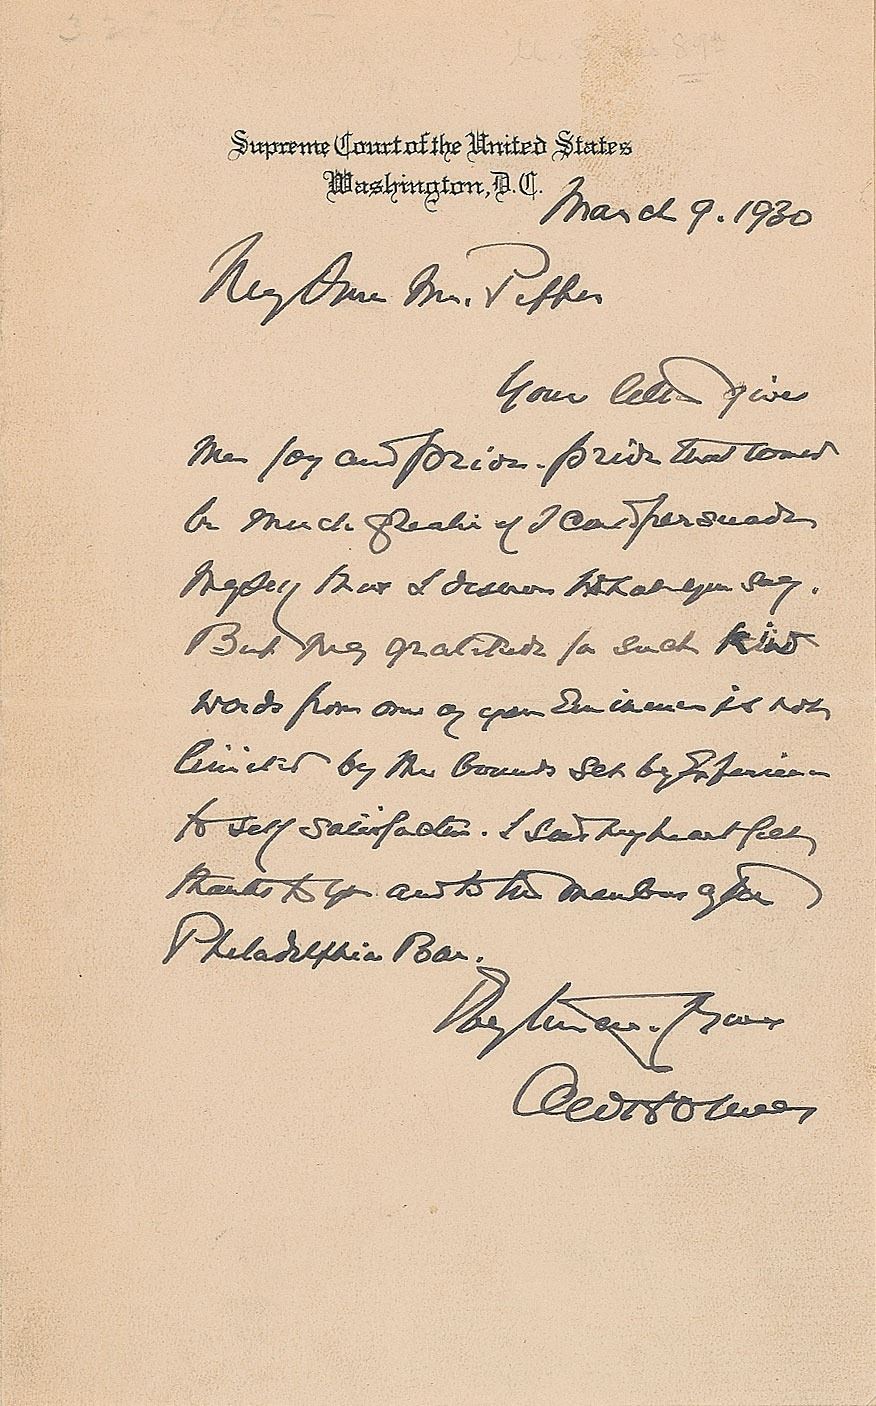 Supreme Court of the United States
Washington, D.C.
March 9. 1930
My dear Mr. Pepper
Your letter gives
me joy and pride - pride that would
be much greater if I could persuade
myself that I deserve what you say.
But my gratitude for such kind
words from one of your eminence is not
limited by the bounds set by experience
to self satisfaction. I send my heartfelt
thanks to you and to the members of the
Philadelphia Bar.
Very sincerely yours
O W Holmes